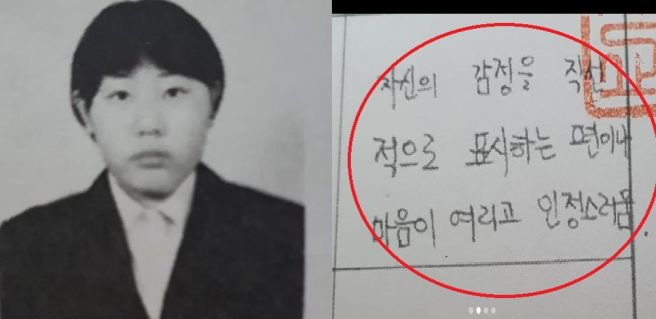 자신의 감정을 직선
적으로 표시하는 편이나
마음이 여리고 인정스러움.